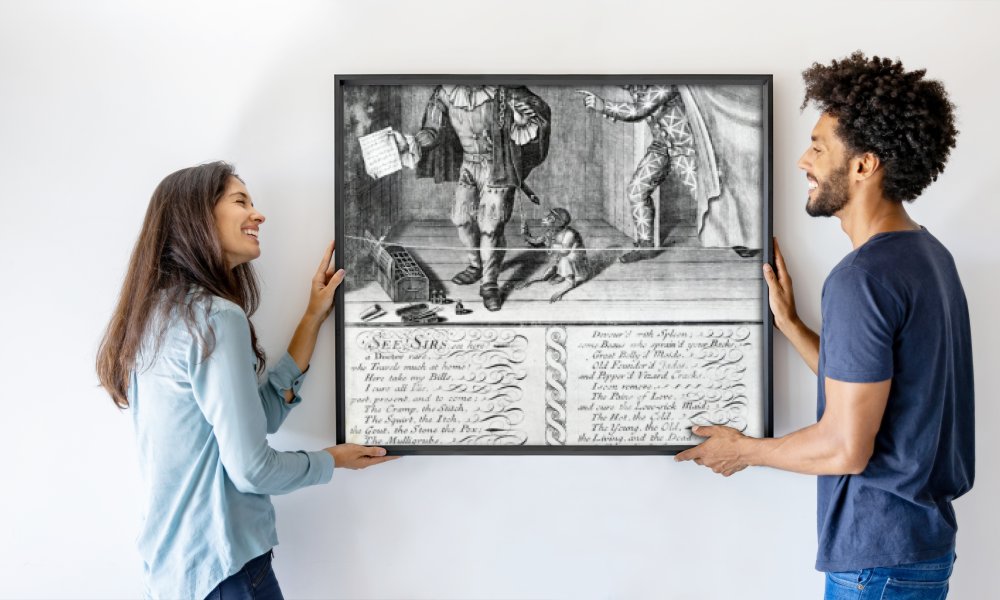 SEE SIRS, see here!
a Doctor rare,
who Travels much at home!
Here take my Bills,
I cure all Ills,
past, present, and to come;
The Cramp, the Stitch,
The Squirt, the Itch,
the Gout, the Stone the Pox;
The Mulligrubs,
Devour'd with Spleen;
some Beaus who sprain'd your Backs,
Great Belly'd Maids,
Old Founder'd Jades,
and Pepper'd Vizard Cracks.
I soon remove,
The Pains of Love,
and cure the Love-sick Maid;
The Hot, the Cold,
The Young, the Old,
the Living, and the Dead